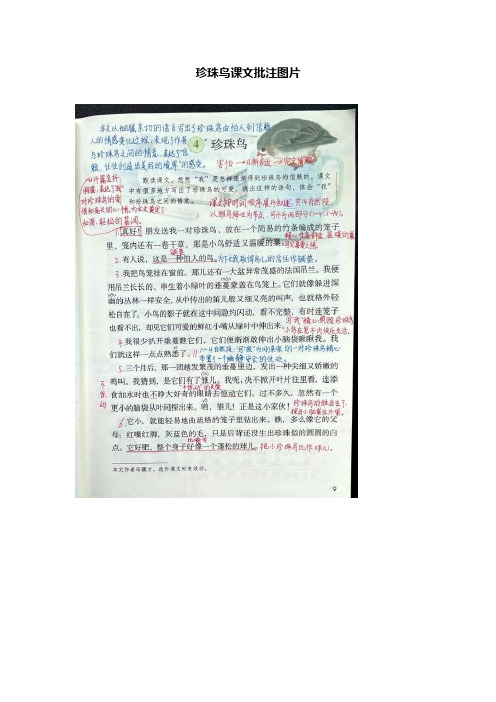 珍珠鸟课文批注图片
本文以细腻亲切的语言写出了珍珠鸟由怕人到信赖
人的情感变化过程,表现了作者
与珍珠鸟之间的情意,表达了“信
赖,往往创造出美好的境界”的感受。
4 珍珠鸟
害怕→日渐亲近→完全信赖
默读课文,想想“我”是怎样逐渐得到珍珠鸟的信赖的。课文
中有很多地方写出了珍珠鸟的可爱,找出这样的语句,体会“我”
和珍珠鸟之间的情意。
1.真好!朋友送我一对珍珠鸟,放在一个简易的竹条编成的笼子
里,笼内还有一卷干草,那是小鸟舒适又温暖的巢。
2.有人说,这是一种怕人的鸟。
3.我把鸟笼挂在窗前。那儿还有一大盆异常茂盛的法国吊兰。我便
用吊兰长长的、串生着小绿叶的垂蔓蒙盖在鸟笼上。它们就像躲进深
幽的丛林一样安全,从中传出的笛儿般又细又亮的叫声,也就格外轻
松自在了。小鸟的影子就在这中间隐约闪动,看不完整,有时连笼子
也看不出,却见它们可爱的鲜红小嘴从绿叶中伸出来。
4.我很少扒开垂蔓瞧它们,它们便渐渐敢伸出小脑袋瞅瞅我。我
们就这样一点点熟悉了。
5.三个月后,那一团越发繁茂的垂蔓里边,发出一种尖细又娇嫩的
鸣叫。我猜到,是它们有了雏儿。我呢,决不掀开叶片往里看,连添
食加水时也不睁大好奇的眼睛去惊动它们。过不多久,忽然有一个
更小的脑袋从叶间探出来。哟,雏儿!正是这小家伙!
6.它小,就能轻易地由疏格的笼子里钻出来。瞧,多么像它的父
母:红嘴红脚,灰蓝色的毛,只是后背还没生出珍珠似的圆圆的白
点。它好肥,整个身子好像一个蓬松的球儿。把小珍珠鸟比作球儿,
本文作者冯骥才,选作课文时有改动。
9